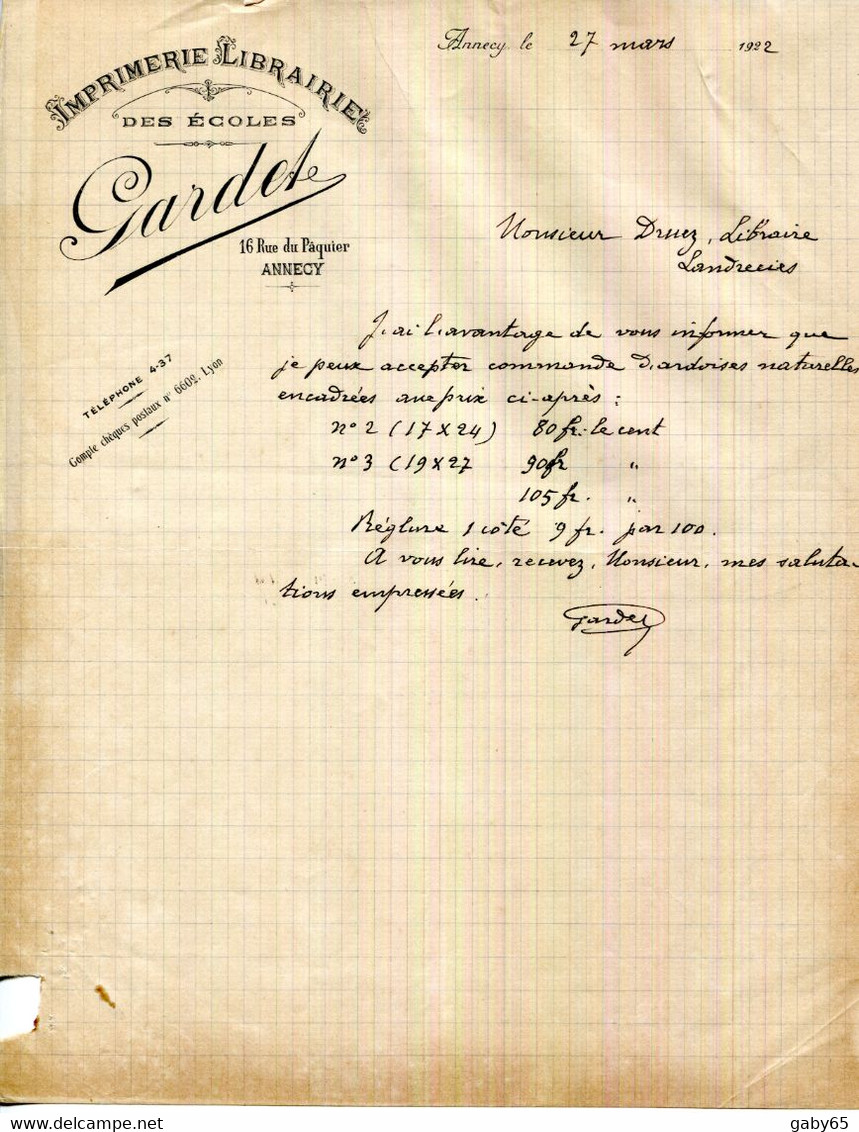 Annecy, le 27 mars 1922
IMPRIMERIE LIBRAIRIE
DES ÉCOLES
Gardet
16 Rue du Pâquier
ANNECY
TÉLÉPHONE 4-37
Compte chèques postaux n° 6602. Lyon
Monsieur Druez, Libraire
Landrecies
J'ai l'avantage de vous informer que
je peux accepter commande d'ardoises naturelles
encadrées aux prix ci-après :
n° 2 (17 x 24) 80 fr. le cent
n° 3 (19 x 27 90 fr "
105 fr. "
Réglure 1 côté 9 fr. par 100.
A vous lire, recevez, Monsieur, mes saluta-
tions empressées.
Gardet
delcampe.net
gaby65